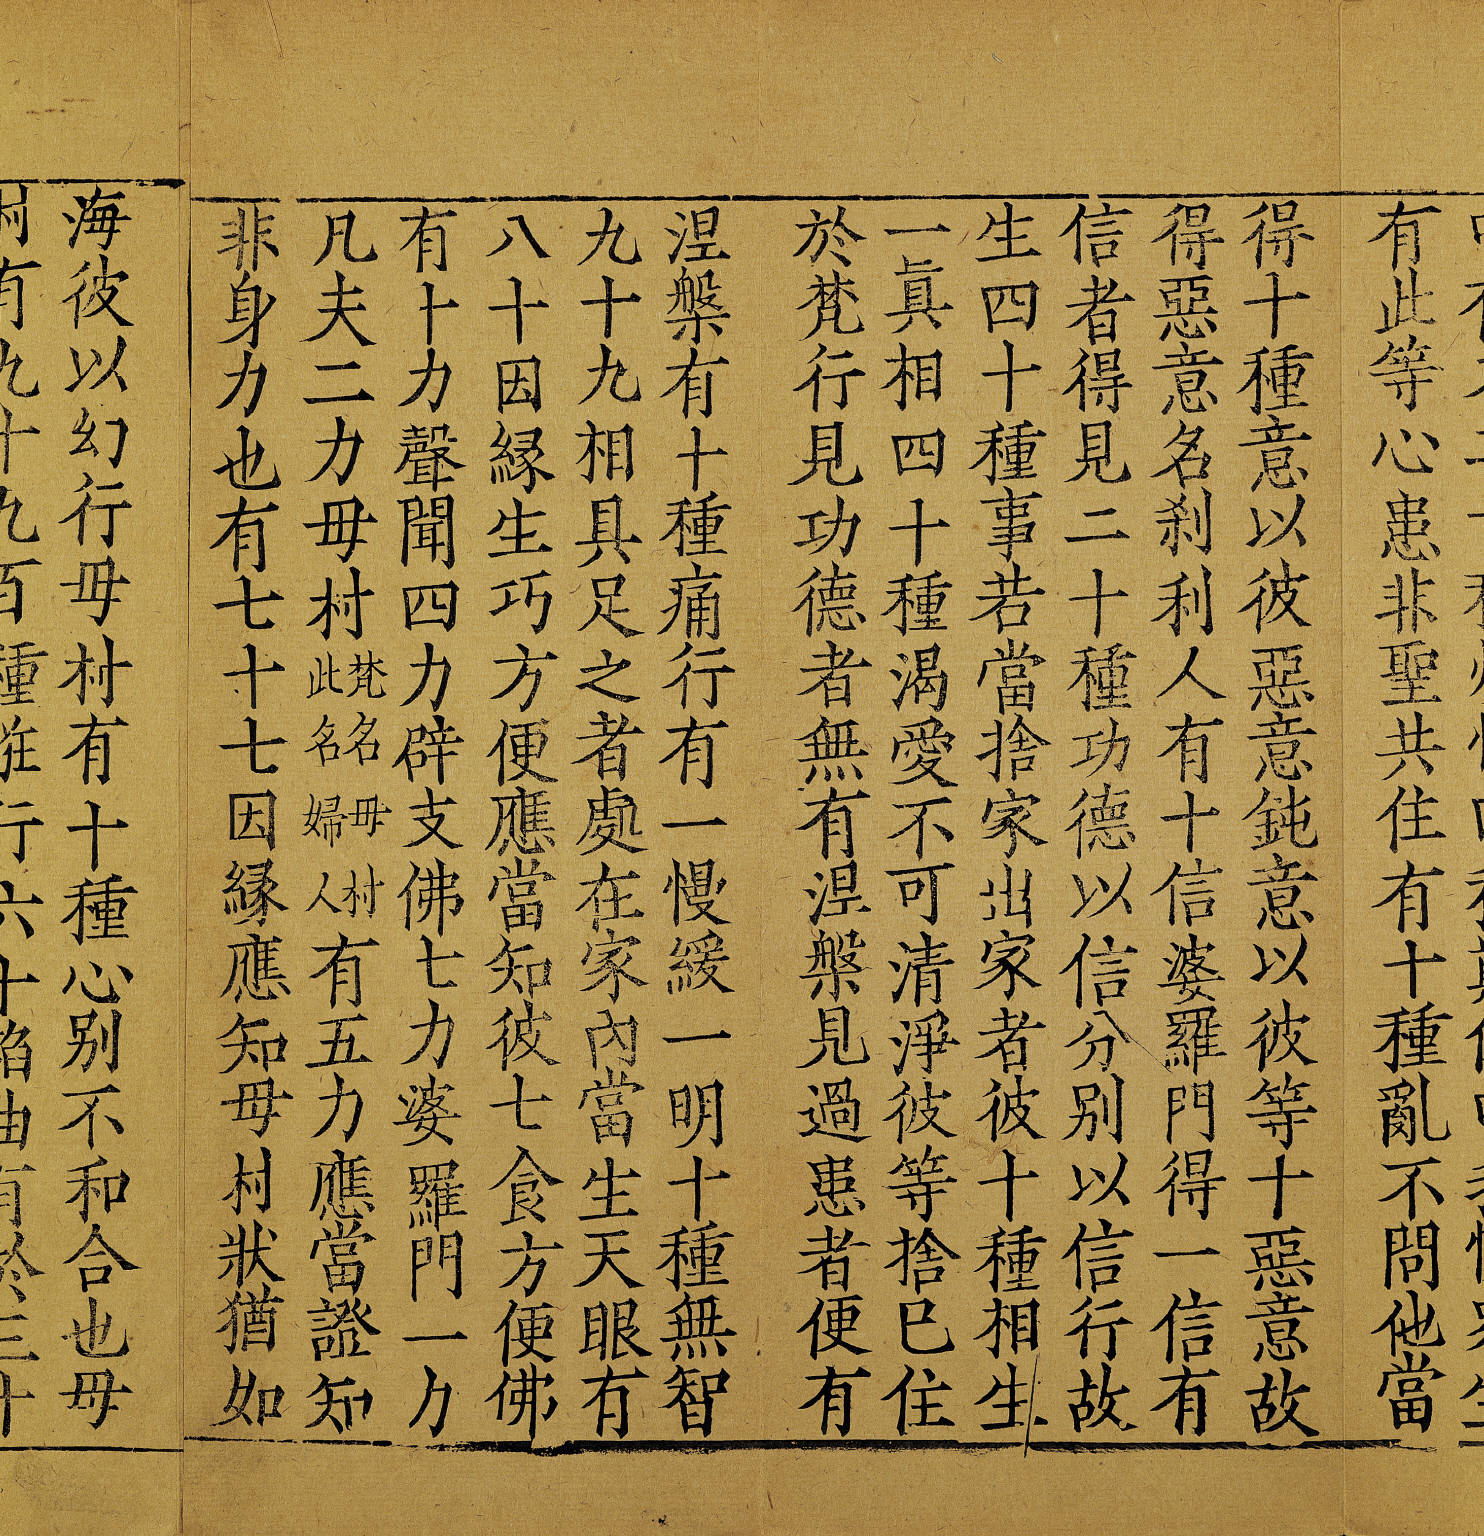 有此等心患非聖共住有十種亂不問他當
得十種意以彼惡意鈍意以彼等十惡意故
得惡意名刹利人有十信婆羅門得一信有
信者得見二十種功德以信分别以信行故
生四十種事若當捨家出家者彼十種相生
一眞相四十種渴愛不可清淨彼等捨已住
於梵行見功德者無有涅槃見過患者便有
涅槃有十種痛行有一慢緩一明十種無智
九十九相具足之者處在家內當生天眼有
八十因緣生巧方便應當知彼七食方便佛
有十力聲聞四力辟支佛七力婆羅門一力
凡夫二力毋村梵名毋村此名婦人有五力應當證知
非身力也有七十七因緣應知毋村狀猶如
海彼以幻行毋村有十種心别不和合也毋
村有九十九百種誑行六十諂曲有於三十